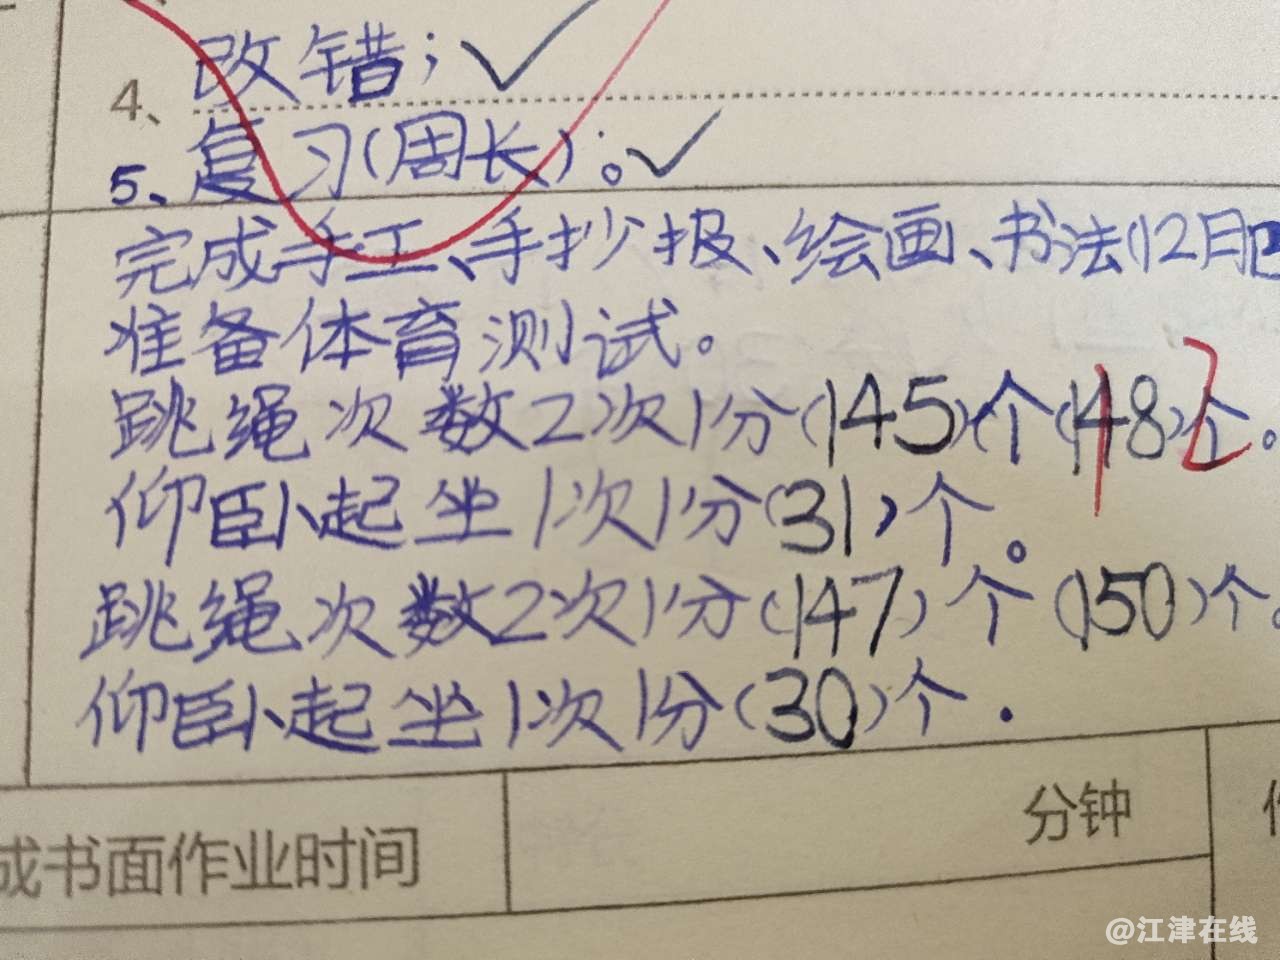 4、改错；✓
5、复习(周长)；。✓
完成手工、手抄报、绘画、书法(12月
准备体育测试。
跳绳次数2次1分(145)个(148)个。
仰卧起坐1次1分(31)个。
跳绳次数2次1分(147)个(150)个。
仰卧起坐1次1分(30)个.
分钟
成书面作业时间
@江津在线